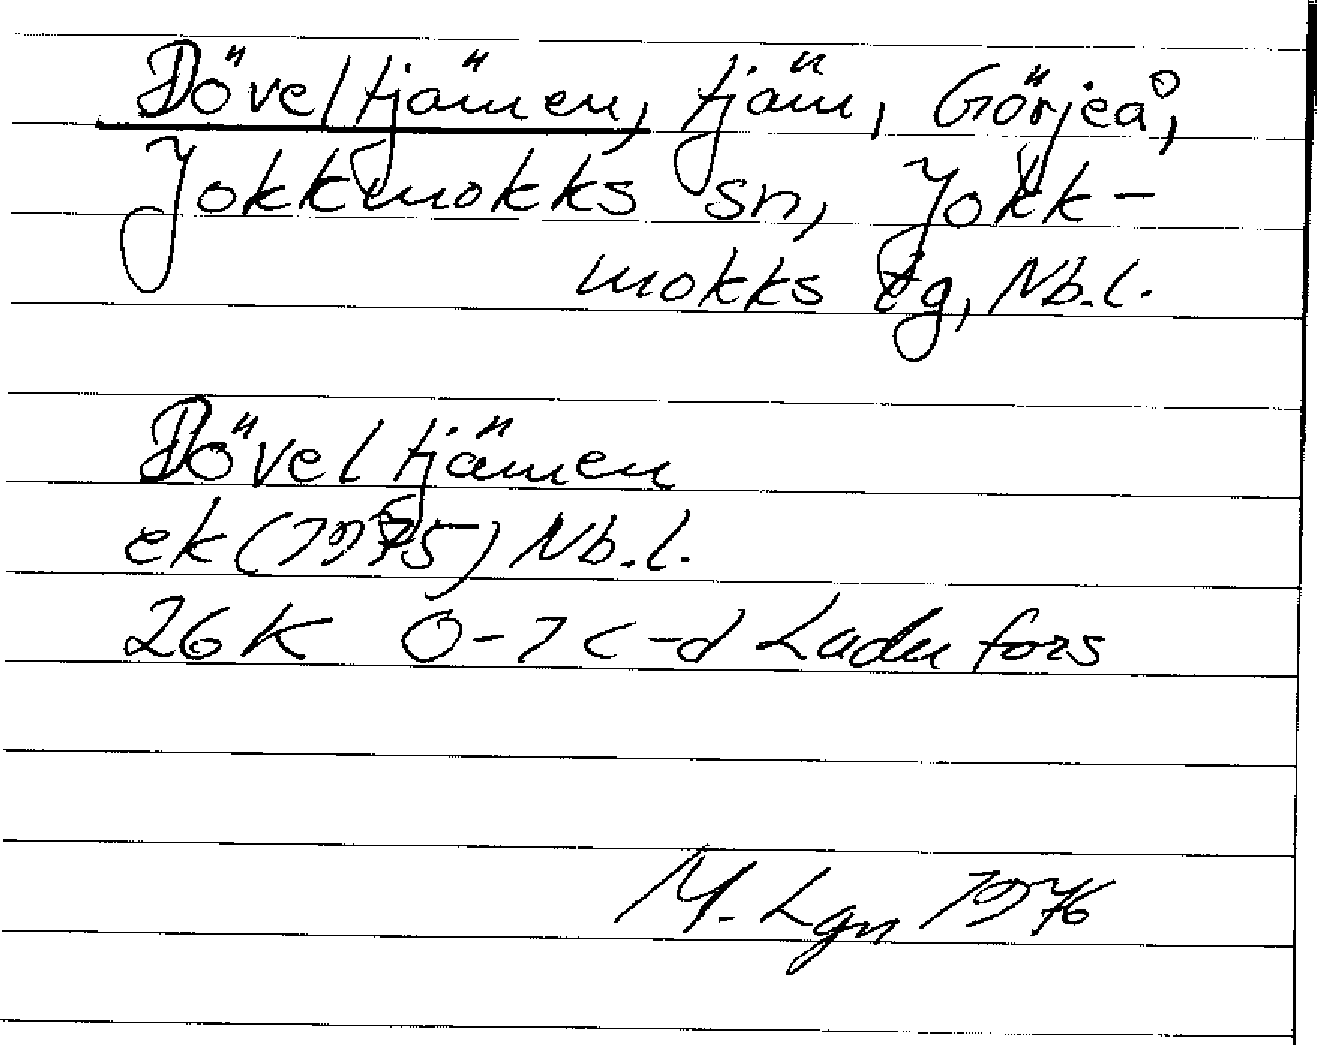 Döveltjärnen, tjärn, Görjeå,
Jokkmokks sn, Jokk-
mokks tg, Nb.l.
Döveltjärnen
ek (1975) Nb.l.
26K 0-1 c-d Ladufors
M. Lgn 1976